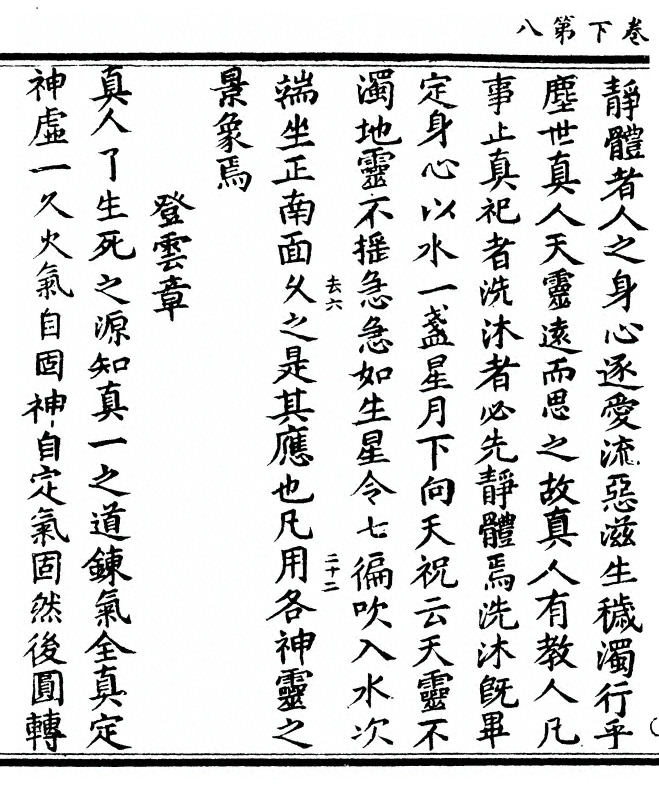 卷下第八
靜體者人之身心逐愛流惡滋生穢濁行乎
塵世真人天靈遠而思之故真人有教人凡
事上真祀者洗沐者必先靜體焉洗沐既畢
定身心以水一盞星月下向天祝云天靈不
濁地靈不搖急急如生星令七徧吹入水次
去六
二十二
端坐正南面久之是其應也凡用各神靈之
景象焉
登雲章
真人了生死之源知真一之道鍊氣全真定
神虛一久火氣自固神自定氣固然後圓轉